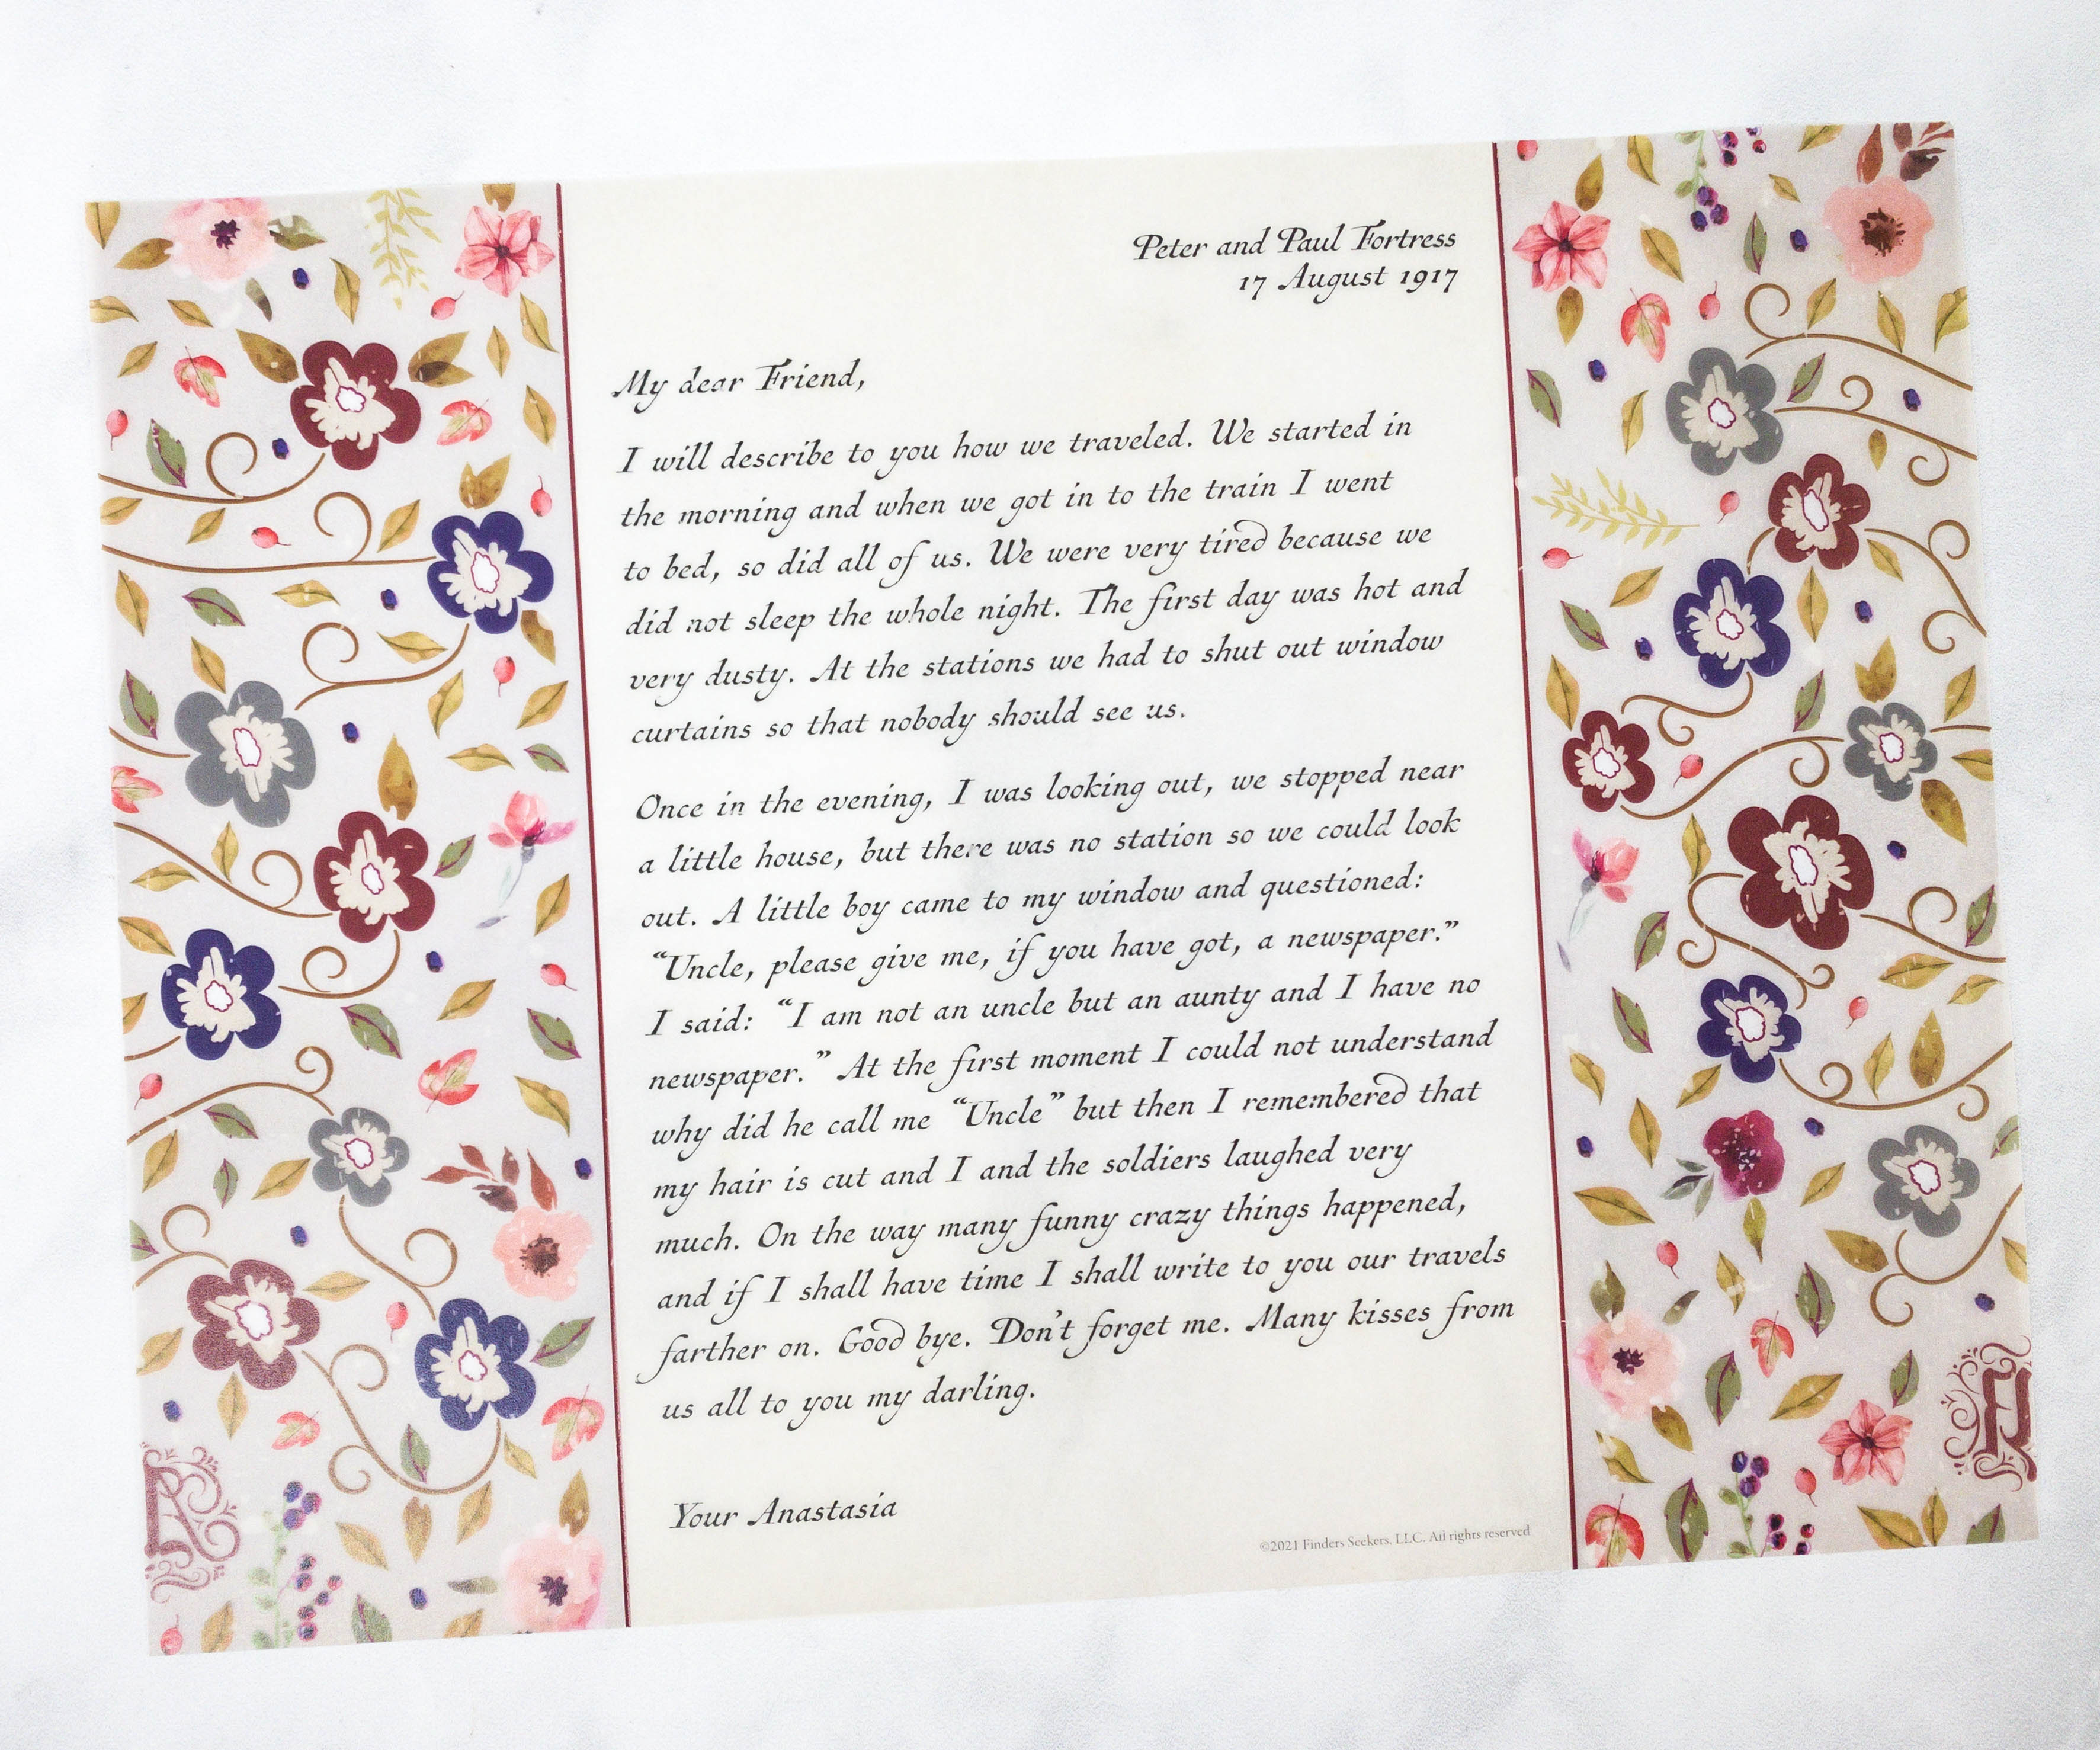 Peter and Paul Fortress
17 August 1917
My dear Friend,
I will describe to you how we traveled. We started in
the morning and when we got in to the train I went
to bed, so did all of us. We were very tired because we
did not sleep the whole night. The first day was hot and
very dusty. At the stations we had to shut out window
curtains so that nobody should see us.
Once in the evening, I was looking out, we stopped near
a little house, but there was no station so we could look
out. A little boy came to my window and questioned:
“Uncle, please give me, if you have got, a newspaper.”
I said: “I am not an uncle but an aunty and I have no
newspaper.” At the first moment I could not understand
why did he call me “Uncle” but then I remembered that
my hair is cut and I and the soldiers laughed very
much. On the way many funny crazy things happened,
and if I shall have time I shall write to you our travels
farther on. Good bye. Don't forget me. Many kisses from
us all to you my darling.
Your Anastasia
©2021 Finders Seekers, LLC. All rights reserved
R
R